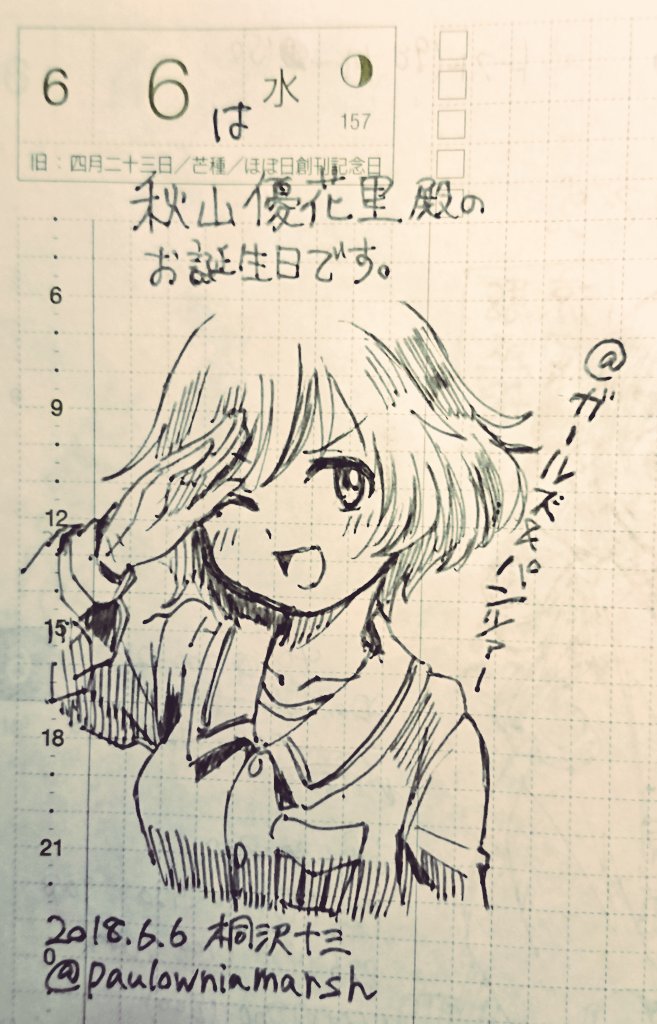 6 6 は 水
157
旧：四月二十三日／芒種／ほぼ日創刊記念日
秋山優花里殿の
お誕生日です。
@ガールズ&パンツァー
6
9
12
15
18
21
0
2018.6.6 桐沢十三
@paulowniamarsh